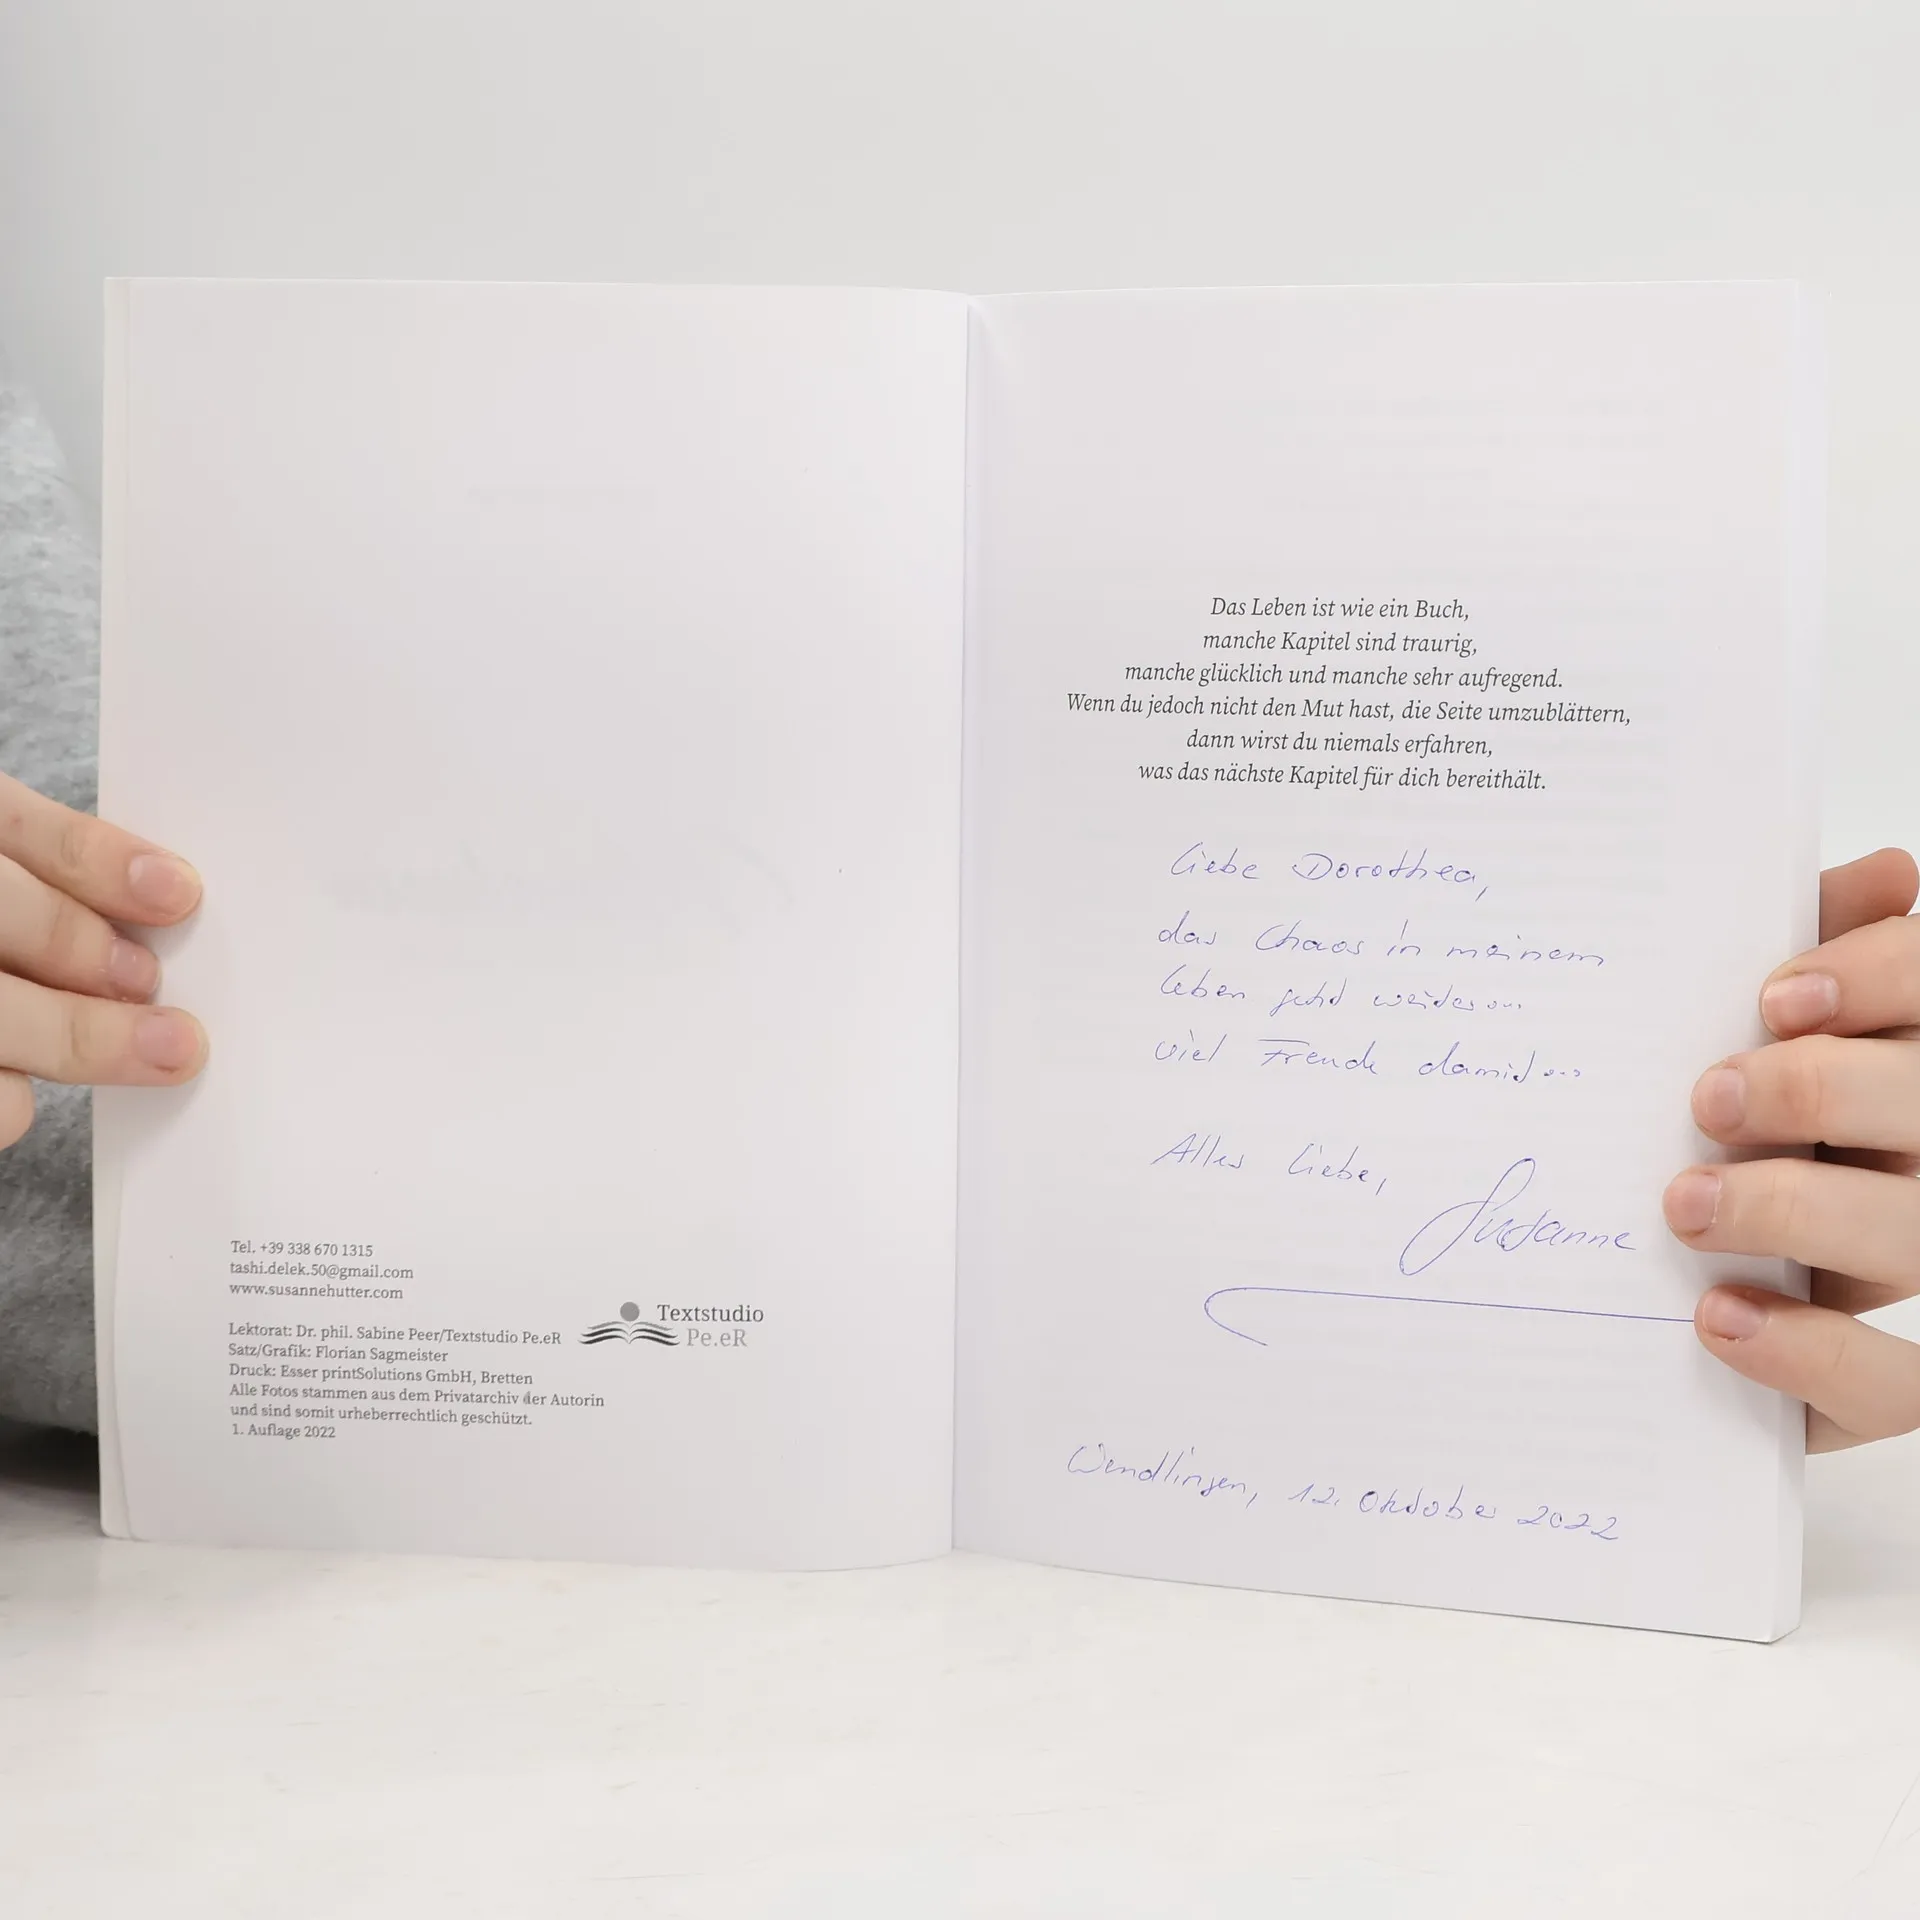 Tel. +39 338 670 1315
tashi.delek.50@gmail.com
www.susannehutter.com
Lektorat: Dr. phil. Sabine Peer/Textstudio Pe.eR
Satz/Grafik: Florian Sagmeister
Druck: Esser printSolutions GmbH, Bretten
Alle Fotos stammen aus dem Privatarchiv der Autorin
und sind somit urheberrechtlich geschützt.
1. Auflage 2022
Textstudio
Pe.eR
Das Leben ist wie ein Buch,
manche Kapitel sind traurig,
manche glücklich und manche sehr aufregend.
Wenn du jedoch nicht den Mut hast, die Seite umzublättern,
dann wirst du niemals erfahren,
was das nächste Kapitel für dich bereithält.
Liebe Dorothea,
das Chaos in meinem
Leben geht weiter...
viel Freude damit...
Alles Liebe,
Susanne
Wendlingen, 12. Oktober 2022